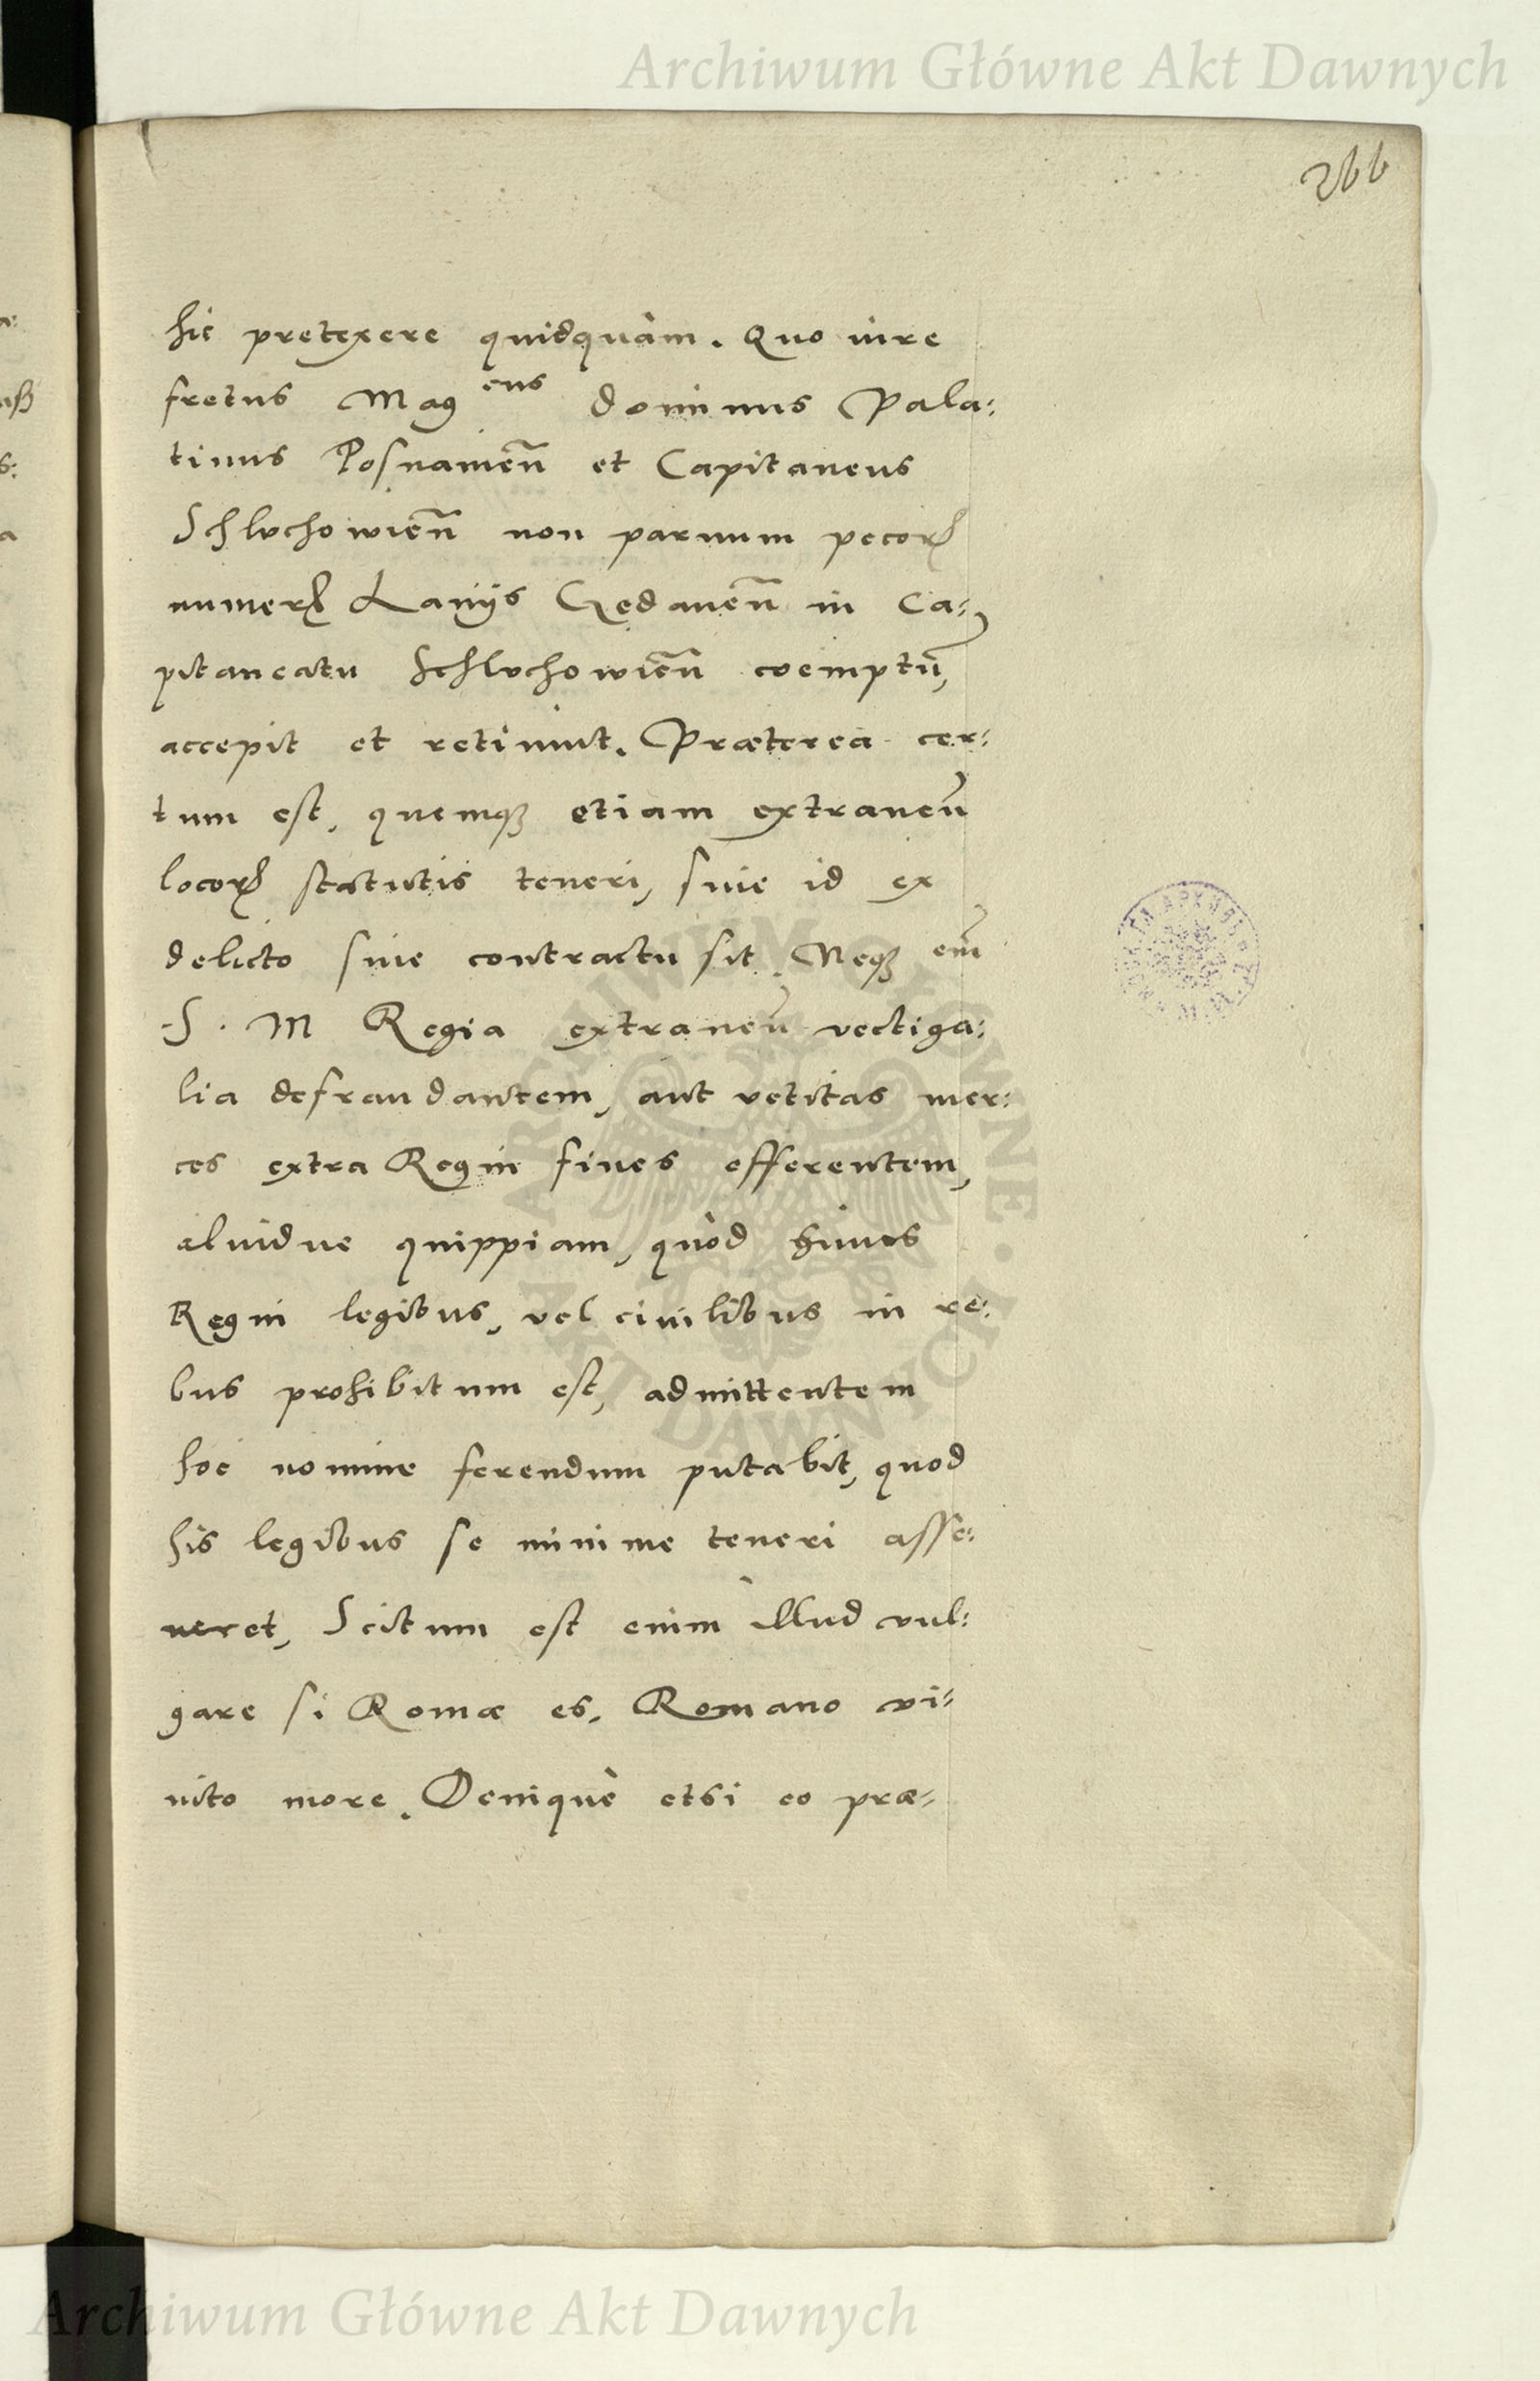 Archiwum Główne Akt Dawnych
266
hic pretexere quidquàm. Quo iure
fretus Mag^cus dominus Pala:
tinus Posnamen̄ et Capitaneus
Schlvchowien̄ non paruum pecorꝝ
numerꝝ Lanijs Gedanen̄ in Ca:
pitaneatu Schlvchowien̄ coemptū,
accepit et retinuit. Præterea cer:
tum est, quemqꝫ etiam extraneū
locorꝝ statutis teneri, siue id ex
delicto siue contractu sit. Neqꝫ em̄
S. M Regia extraneū vectiga:
lia defraudantem, aut vetitas mer:
ces extra Regni fines efferentem,
aluidue quippiam, quòd huius
Regni legibus, vel ciuilibus in re:
bus prohibitum est, admittentem
hoc nomine ferendum putabit, quod
his legibus se minime teneri asse:
ueret, Scitum est enim illud vul:
gare si Romæ es, Romano vi:
uito more. Deniquè etsi eo præ:
ARCHIWUM GŁÓWNE AKT DAWNYCH
Archiwum Główne Akt Dawnych